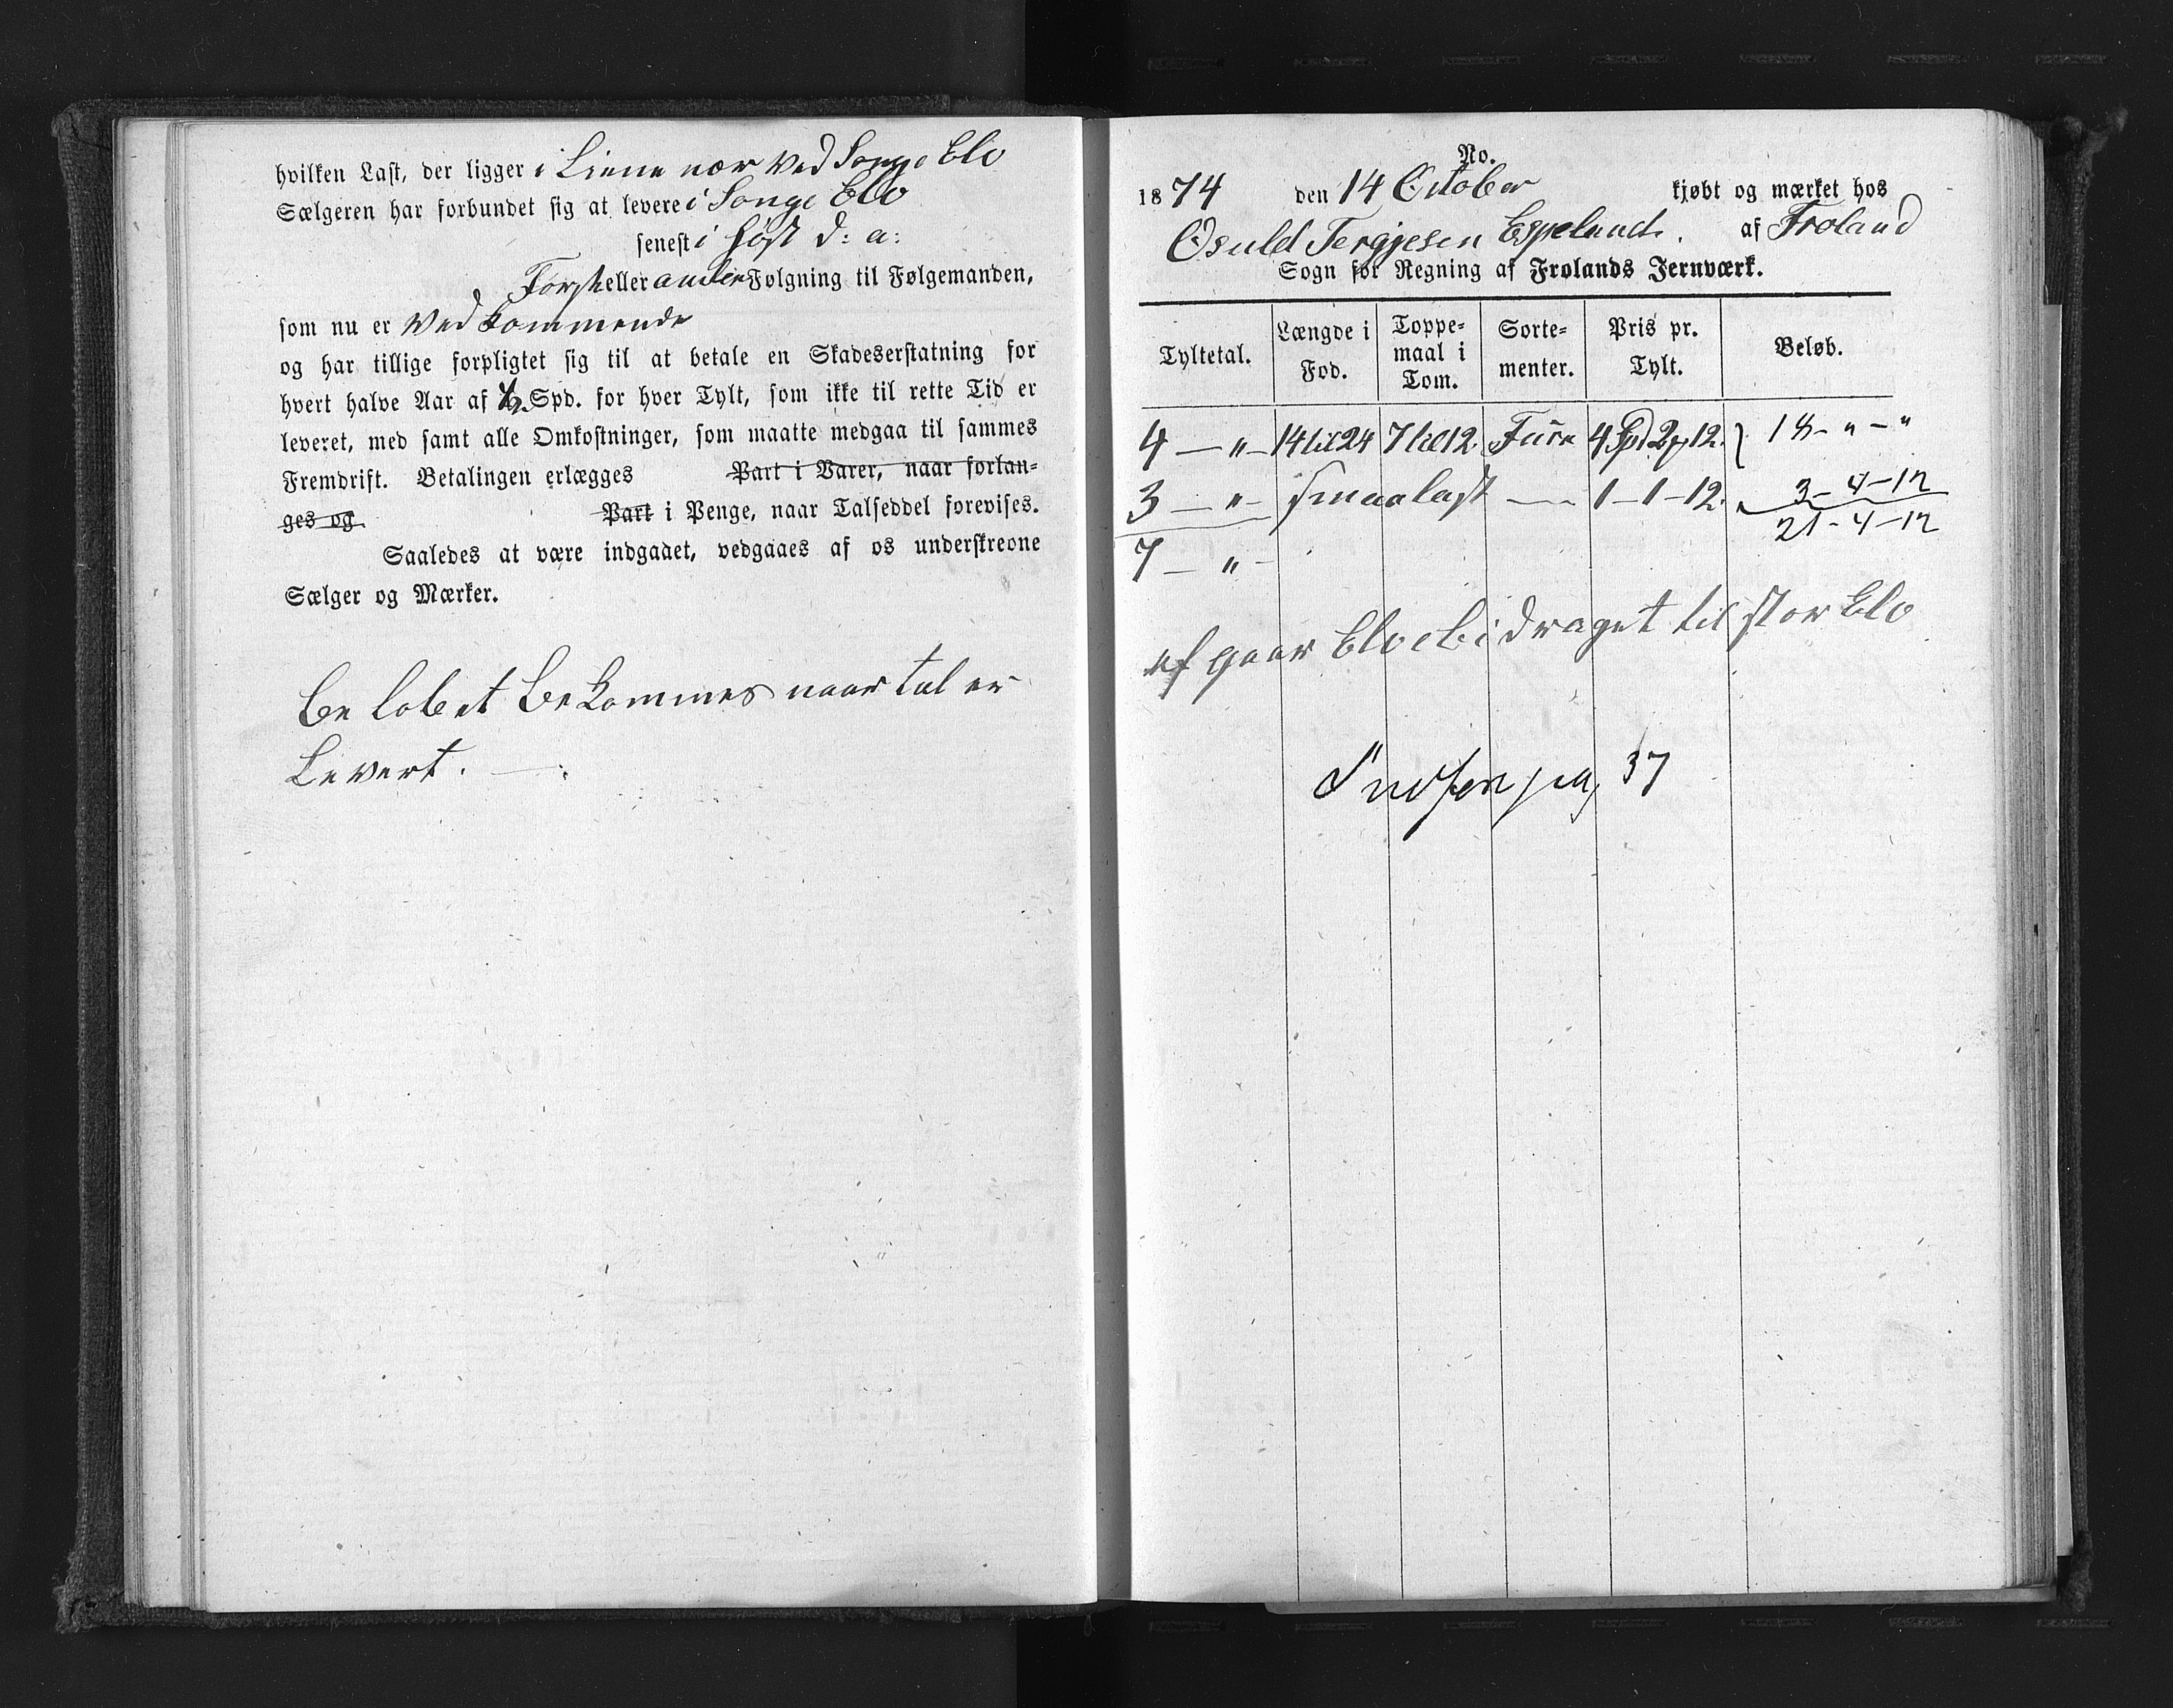 hvilken Last, der ligger i Liene nær ved Songe Elv
Sælgeren har forbundet sig at levere i Songe Elv
senest i Høst d: a:
Første eller anden Følgning til Følgemanden,
som nu er Vedkommende
og har tillige forpligtet sig til at betale en Skadeserstatning for
hvert halve Aar af 1/2 Spd. for hver Tylt, som ikke til rette Tid er
leveret, med samt alle Omkostninger, som maatte medgaa til sammes
Fremdrift. Betalingen erlægges Part i Varer, naar forlan-
ges og Part i Penge, naar Talseddel forevises.
Saaledes at være indgaaet, vedgaaes af os underskrevne
Sælger og Mærker.
Belobet bekommes naar tal er
Levert. —
No.
1874 den 14 October kjøbt og mærket hos
Osuld Tergjesen Espelund. af Froland
Sogn for Regning af Frolands Jernværk.
Tyltetal. Længde i Fod. Toppe-maal i Tom. Sorte-menter. Pris pr. Tylt. Beløb.
4 — " — 14 til 24 7 til 12 Furu 4 Spd 2 12. 18 - " - "
3 — " — smaalast — 1 - 1 - 12. 3 - 4 - 12
21 - 4 - 12
7 — " —
af gaar Elvebidraget til stor Elv
Indført pag 37